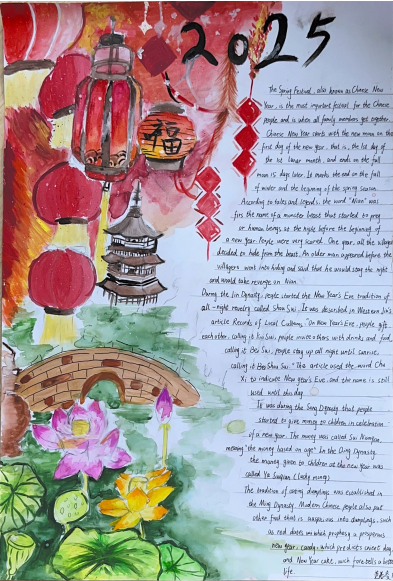 2025
福
The Spring Festival, also known as Chinese New
Year, is the most important festival for the Chinese
people and is when all family members get together.
Chinese New Year starts with the new moon on the
first day of the new year, that is, the 1st day of
the 1st lunar month, and ends on the full
moon 15 days later. It marks the end on the fall
of winter and the beginning of the spring season.
According to tales and legends, the word "Nian" was
firs the name of a monster beast that started to prey
on human beings at the night before the beginning of
a new year. People were very scared. One year, all the villages
decided to hide from the beast. An older man appeared before the
villagers went into hiding and said that he would stay the night
and would take revenge on Nian.
During the Jin Dynasty, people started the New Year's Eve tradition of
all-night revelry called Shou Sui. It was described in Western Jin's
article Records of Local Culture, "On New Year's Eve, people gift
each other, calling it Kui Sui, people invite others with drinks and food,
calling it Bei Sui, people stay up all night until sunrise,
calling it Shou Sui." The article used the word Chu
Xi to indicate New Year's Eve, and the name is still
used until this day.
It was during the Song Dynasty that people
started to give money to children in celebration
of a new year. The money was called Sui Nianqian,
meaning "the money based on age". In the Qing Dynasty,
the money given to children at the new year was
called Ya Suiqian (lucky money)
The tradition of eating dumplings was established in
the Ming Dynasty. Modern Chinese people also put
other food that is auspicious into dumplings, such
as red dates which prophesy a prosperous
new year, candy, which predicts sweet day,
and New Year cake, which foretells a better
life.